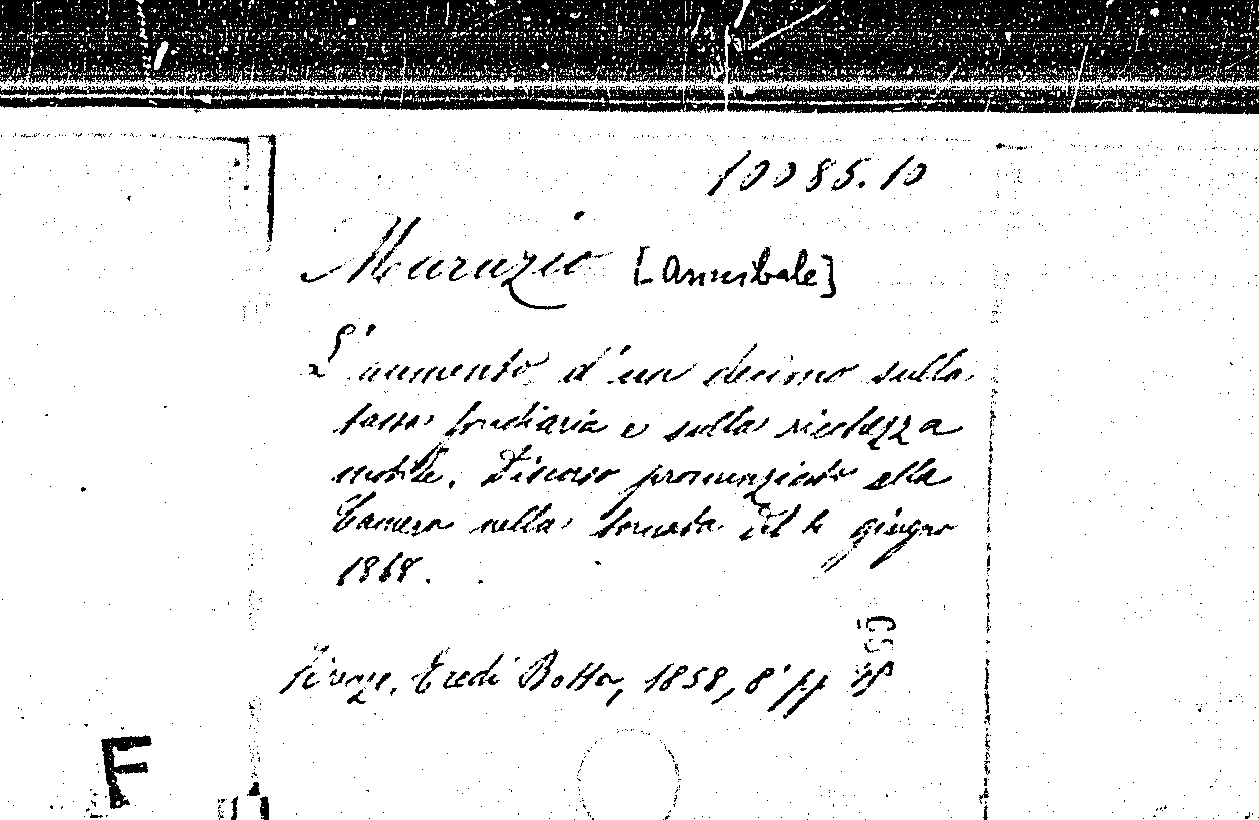 10085.10
Marazio [Annibale]
L'aumento d'un decimo sulla
tassa fondiaria e sulla ricchezza
mobile. Discorso pronunziato alla
Camera nella tornata del giugno
1868.
Firenze, Eredi Botta, 1858, 8° pp
F